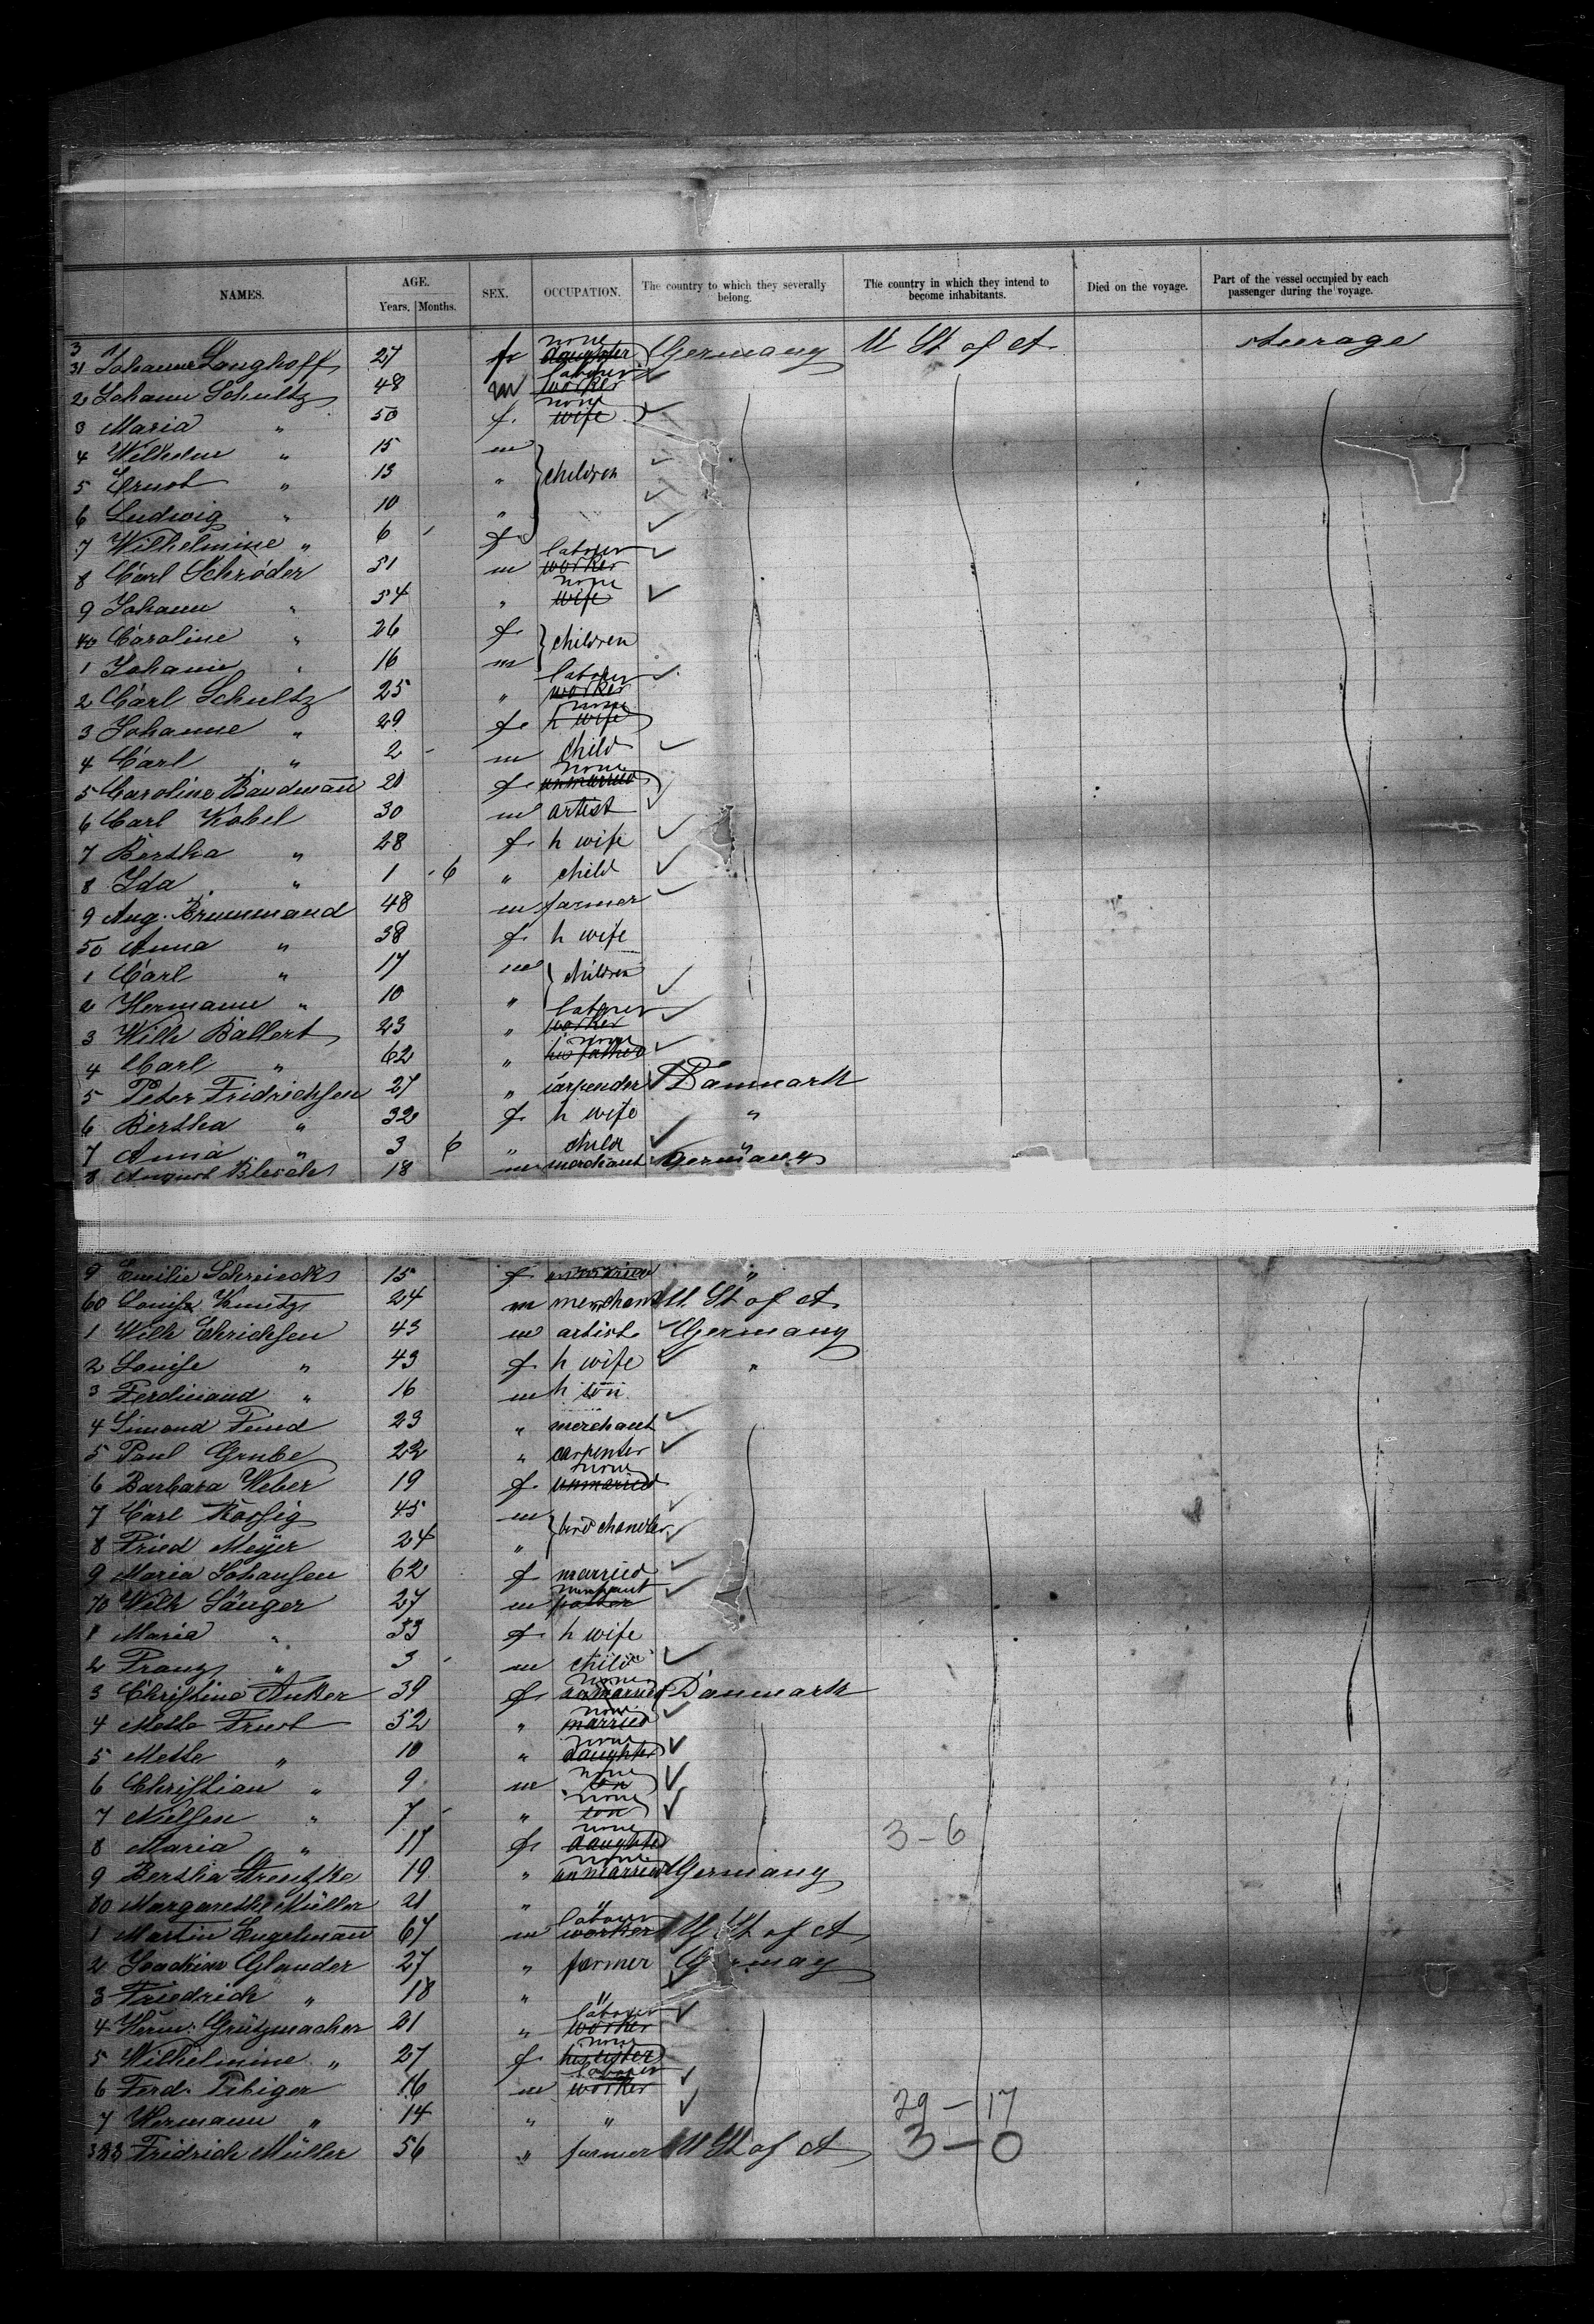 NAMES. AGE. Years. Months. SEX. OCCUPATION. The country to which they severally belong. The country in which they intend to become inhabitants. Died on the voyage. Part of the vessel occupied by each passenger during the voyage.
331 Johanne Langhoff 27 f daughter none Germany U St of A steerage
2 Johann Schultz 48 m worker labourer
3 Maria " 50 f. wife none
4 Wilhelm " 15 m
5 Ernst " 13 " children
6 Ludwig " 10 "
7 Wilhelmine " 6 f
8 Carl Schröder 51 m worker labourer
9 Johann " 54 " wife none
40 Caroline " 26 f children
1 Johann " 16 m
2 Carl Schultz 25 " worker labourer
3 Johanne " 29 f h wife none
4 Carl " 2 m child
5 Caroline Baudmann 20 f unmarried none
6 Carl Kobel 30 m artist
7 Bertha " 28 f h wife
8 Ida " 1 6 " child
9 Aug. Brummand 48 m farmer
50 Anna " 38 f h wife
1 Carl " 17 m children
2 Hermann " 10 "
3 Wilh Ballert 23 " worker labourer
4 Carl " 62 " his father none
5 Peter Fridrichsen 27 " carpender Danmark
6 Bertha " 32 f h wife "
7 Anna " 3 6 " child "
8 August 18 m merchant Germany
9 Emilie 15 f unmarried "
60 Louise 24 m merchant U. St of A
1 Wilh Ehrichsen 43 m artist Germany
2 Louise " 43 f h wife "
3 Ferdinand " 16 m h son
4 Simond 23 " merchant
5 Paul Grube 22 " carpenter
6 Barbara Weber 19 f unmaried none
7 Carl 45 m
8 Fried Meyer 24 "
9 Maria Johansen 62 f married
70 Wilh Sänger 27 m
1 Maria " 33 f h wife
2 Franz " 3 m child
3 Christine 39 f unmarried none Danmark
4 Mette 52 " married none
5 Mette " 10 " daughter none
6 Christian " 9 m son none
7 Nielsen " 7 " son none
8 Maria " 17 f daughter none 3-6
9 Bertha 19 " unmarried none Germany
80 Margarethe Müller 21 " "
1 Martin Engelmann 67 m worker labourer U St of A
2 Joachim Glander 27 " farmer Germay
3 Friedrich " 18 " "
4 Herm: Grützmacher 21 " worker labourer
5 Wilhelmine " 27 f his sister none
6 Ferd. 16 m worker labourer
7 Hermann " 14 " " 29-17
388 Fridrich Müller 56 " farmer U St of A 3-0